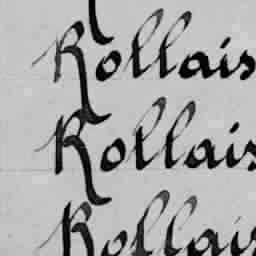 Rollais
Rollais
Rollais